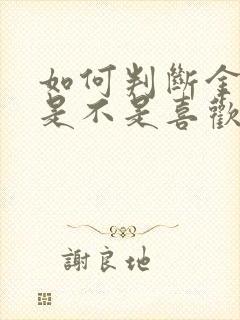 如何判斷金
是不是喜歡
謝良地